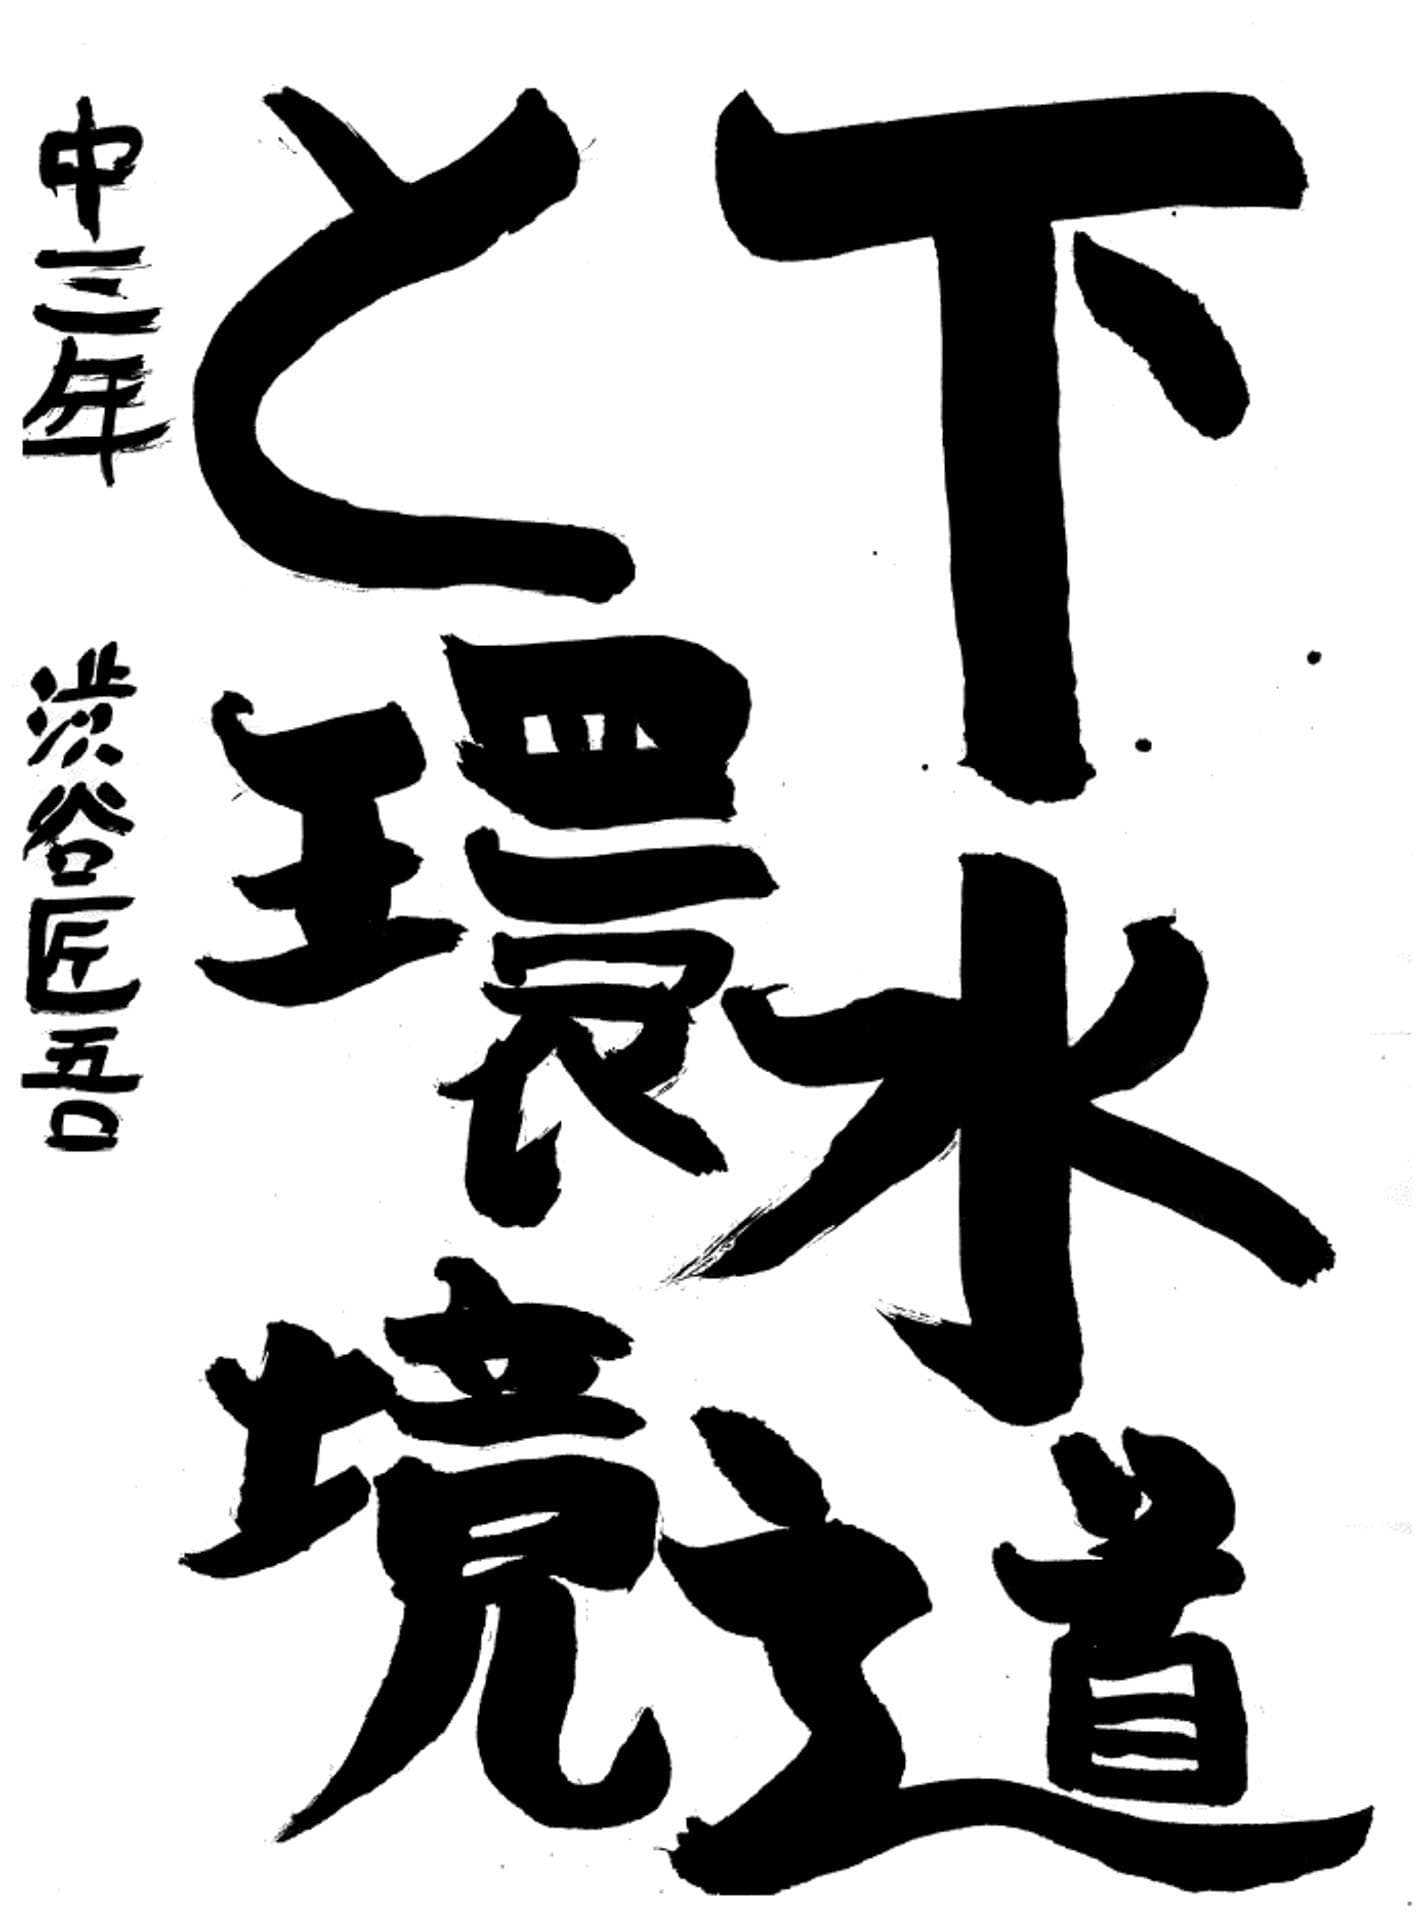 下水道
と環境
中三年 渋谷匠吾